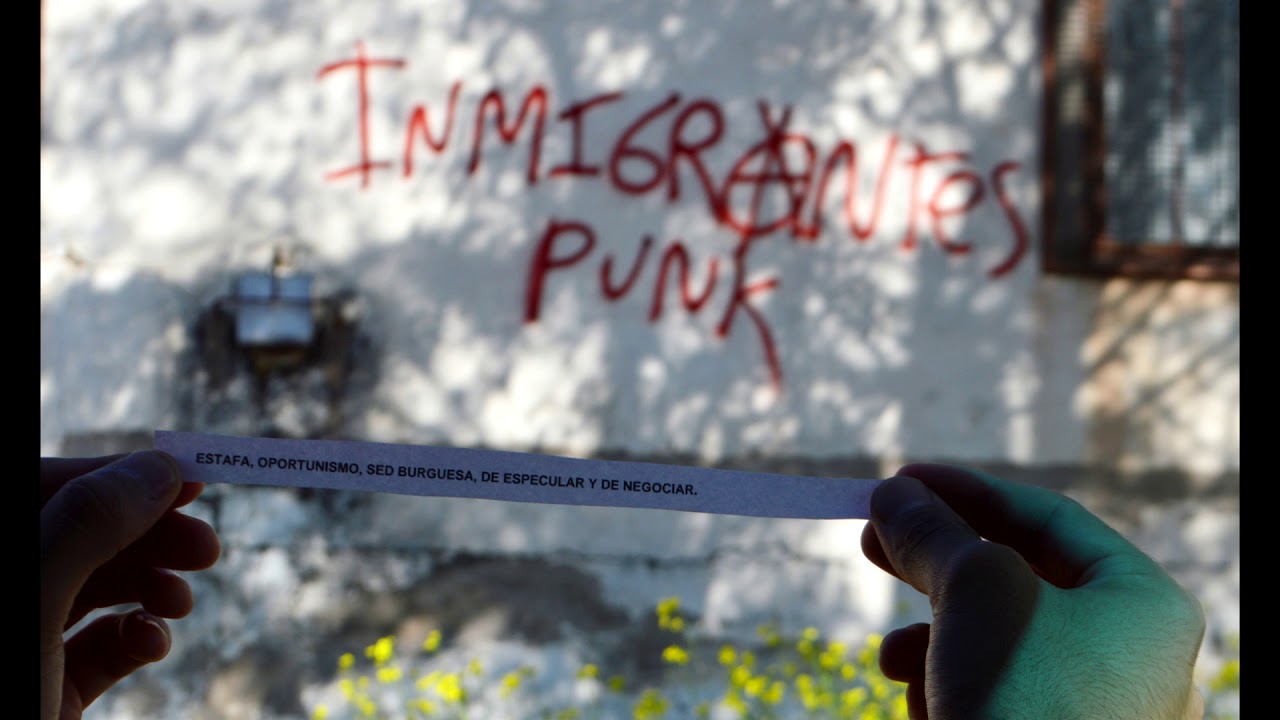 INMIGRANTES
PUNK
ESTAFA, OPORTUNISMO, SED BURGUESA, DE ESPECULAR Y DE NEGOCIAR.